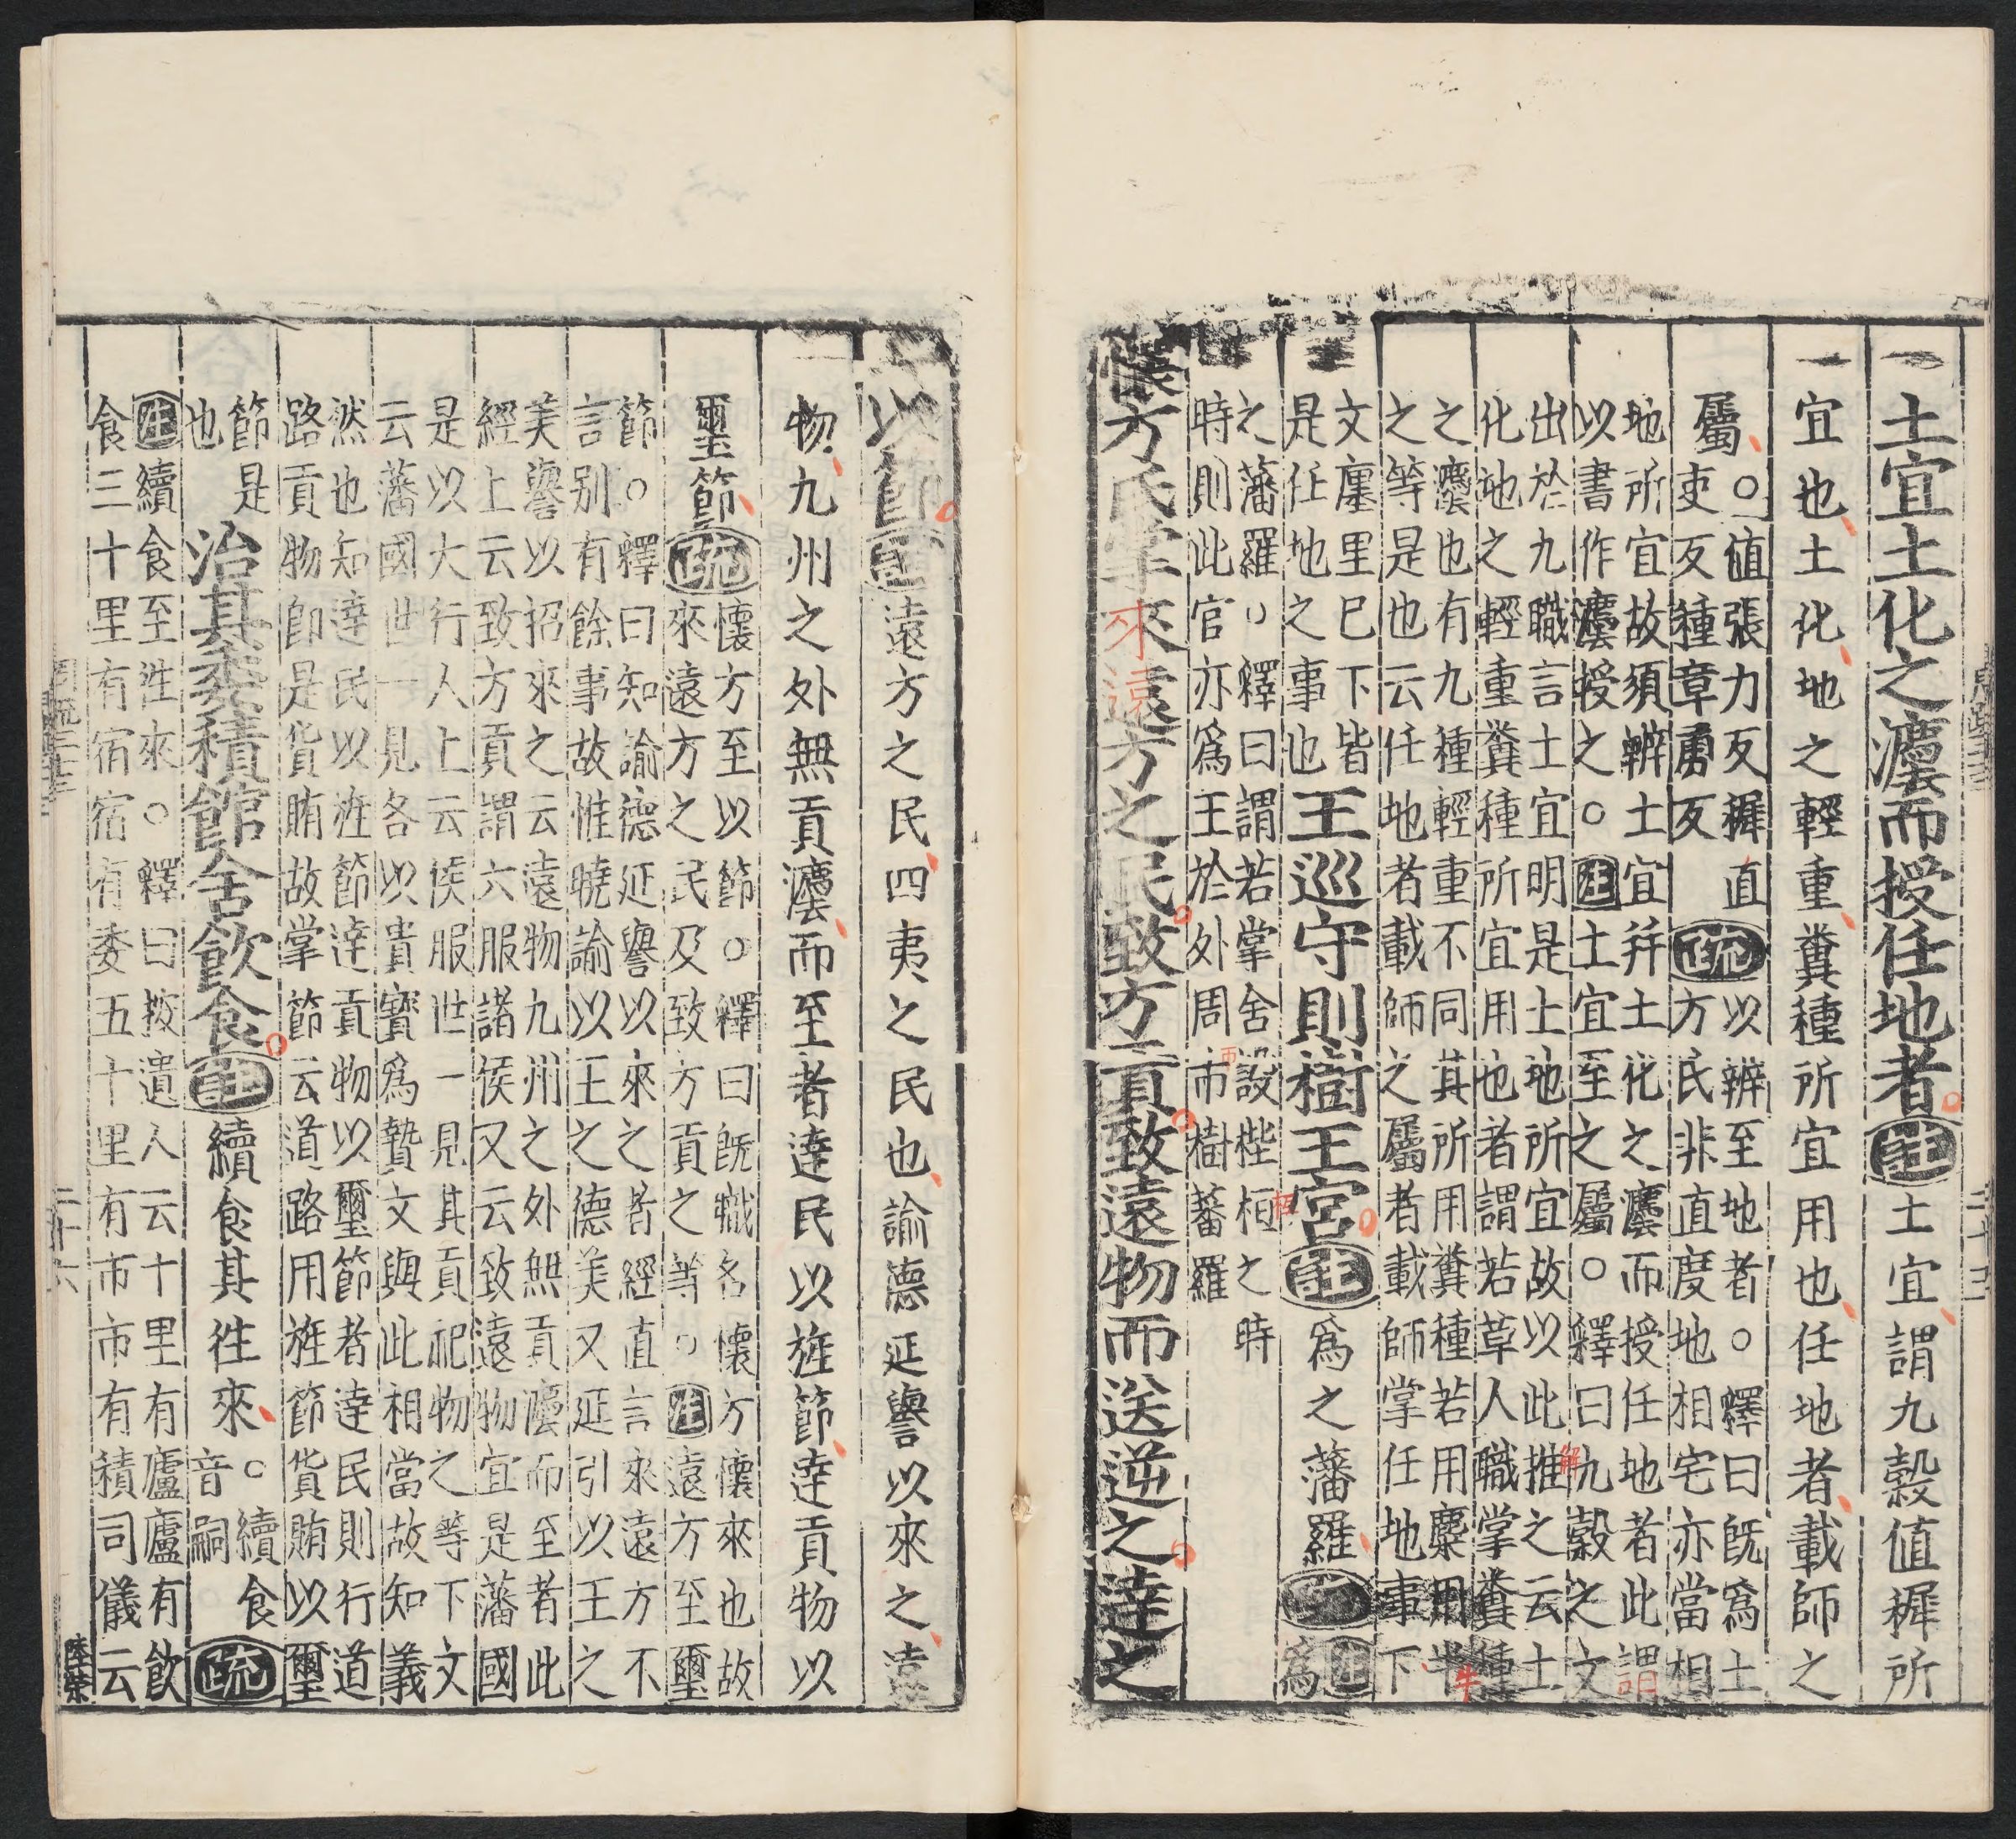 土宜土化之灋而授任地者註土宜謂九穀値穉所
宜也土化地之輕重糞種所宜用也任地者載師之
屬
○値張力反穉直
吏反種章勇反
疏
以辨至地者○釋曰既爲土
方氏非直度地相宅亦當相
地所宜故須辨土宜并土化之灋而授任地者此謂
以書作灋授之○注土宜至之屬○釋曰九穀之文
出於九職言土宜明是土地所宜故以此推之云土
化地之輕重糞種所宜用也者謂若草人職掌糞種
之灋也有九種輕重不同其所用糞種若用麋用牛
之等是也云任地者載師之屬者載師掌任地事下
文廛里已下皆
是任地之事也
王巡守則樹王宮註爲之藩羅疏
注
爲
之藩羅○釋曰謂若掌舍設梐桓之時
時則此官亦爲王於外周市樹蕃羅
懷方氏掌來遠方之民致方貢致遠物而送逆之達之
以節註遠方之民四夷之民也諭德延譽以來之遠
物九州之外無貢灋而至者達民以旌節達貢物以
璽節疏
懷方至以節○釋曰旣職名懷方懷來也故
來遠方之民及致方貢之等○注遠方至璽
節○釋曰知諭德延譽以來之者經直言來遠方不
言别有餘事故惟曉諭以王之德美又延引以王之
美譽以招來之云遠物九州之外無貢灋而至者此
經上云致方貢謂六服諸侯又云致遠物宜是藩國
是以大行人上云侯服世一見其貢祀物之等下文
云藩國世一見各以貴寳爲贄文與此相當故知義
然也知達民以旌節達貢物以璽節者達民則行道
路貢物卽是貨賄故掌節云道路用旌節貨賄以璽
節是
也
治其委積館舍飲食註續食其往來
○續食
音嗣○
疏
注續食至往來○釋曰按遺人云十里有廬廬有飲
食三十里有宿宿有委五十里有市市有積司儀云
陸榮